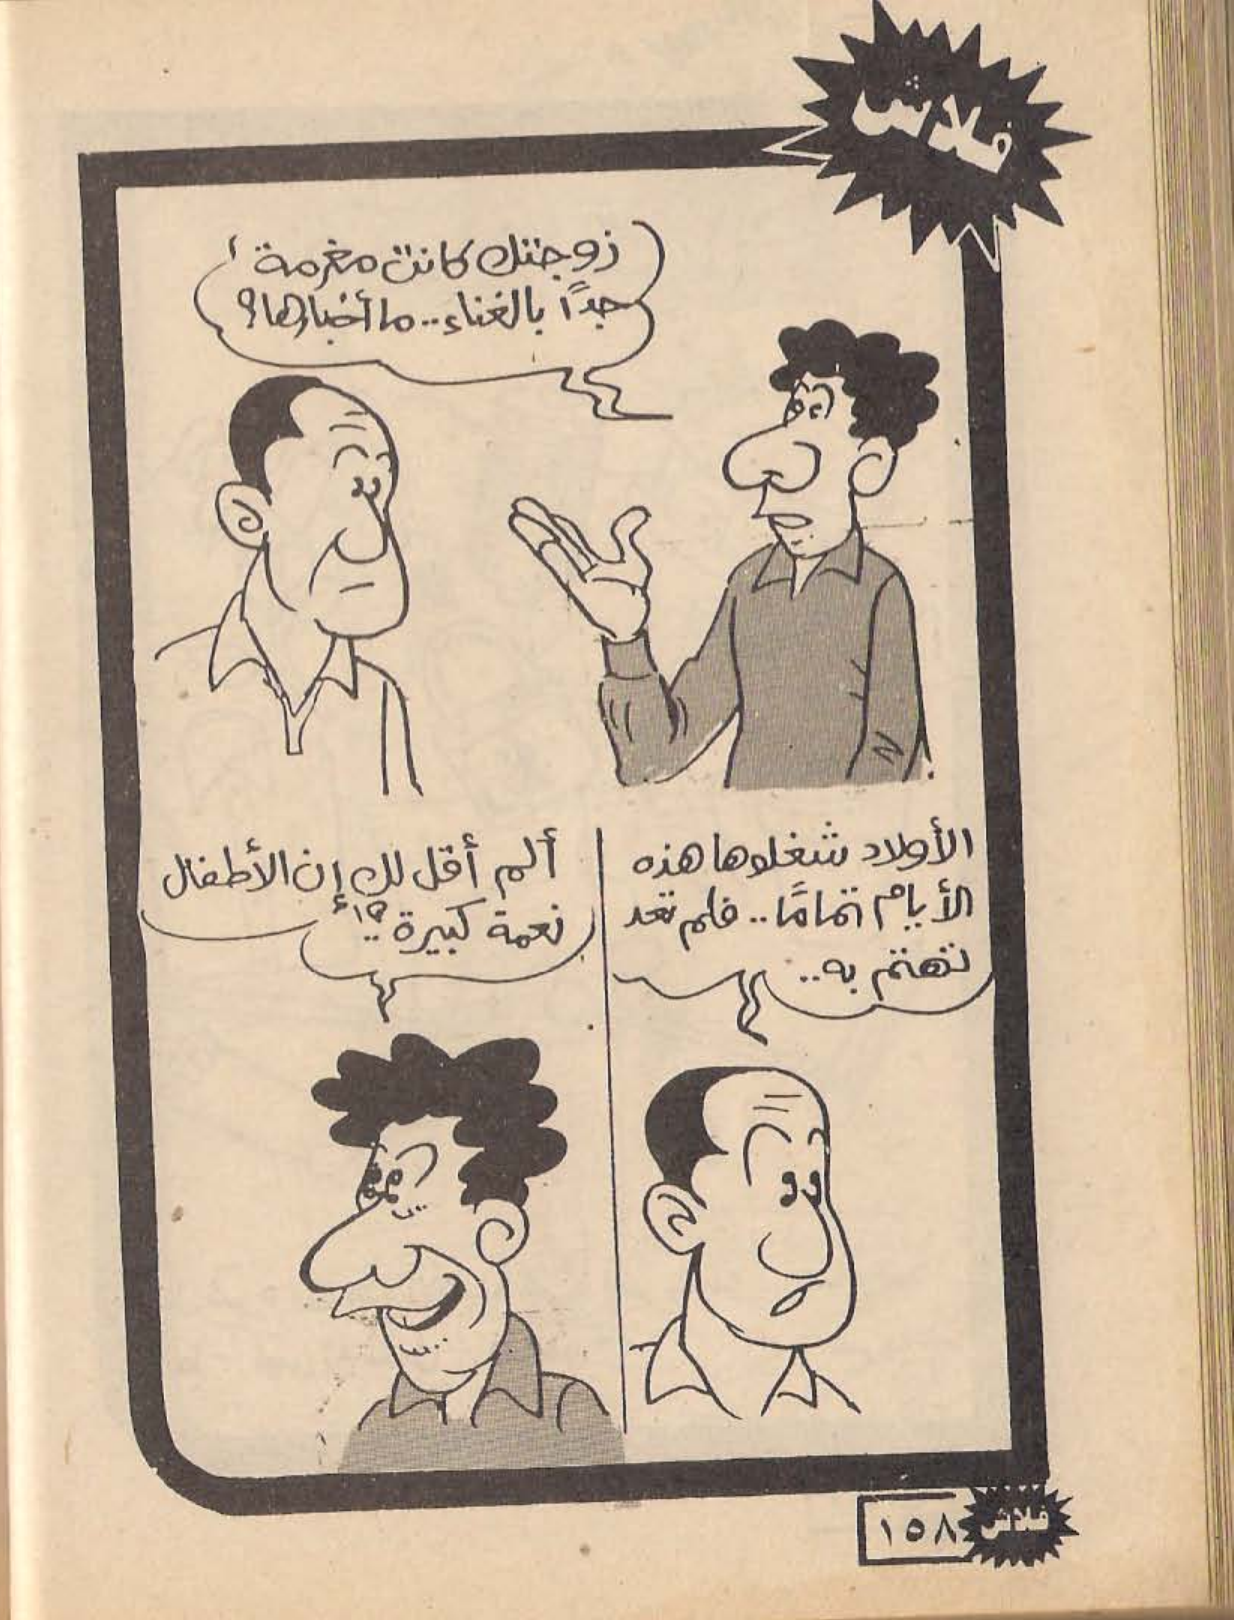 فلاش
زوجتك كانت مغرمة
جدًا بالغناء.. ما أخبارها؟
الأولاد شغلوها هذه
الأيام تمامًا.. فلم تعد
تهتم به..
ألم أقل لك إن الأطفال
نعمة كبيرة ..؟!
فلاش
١٥٨